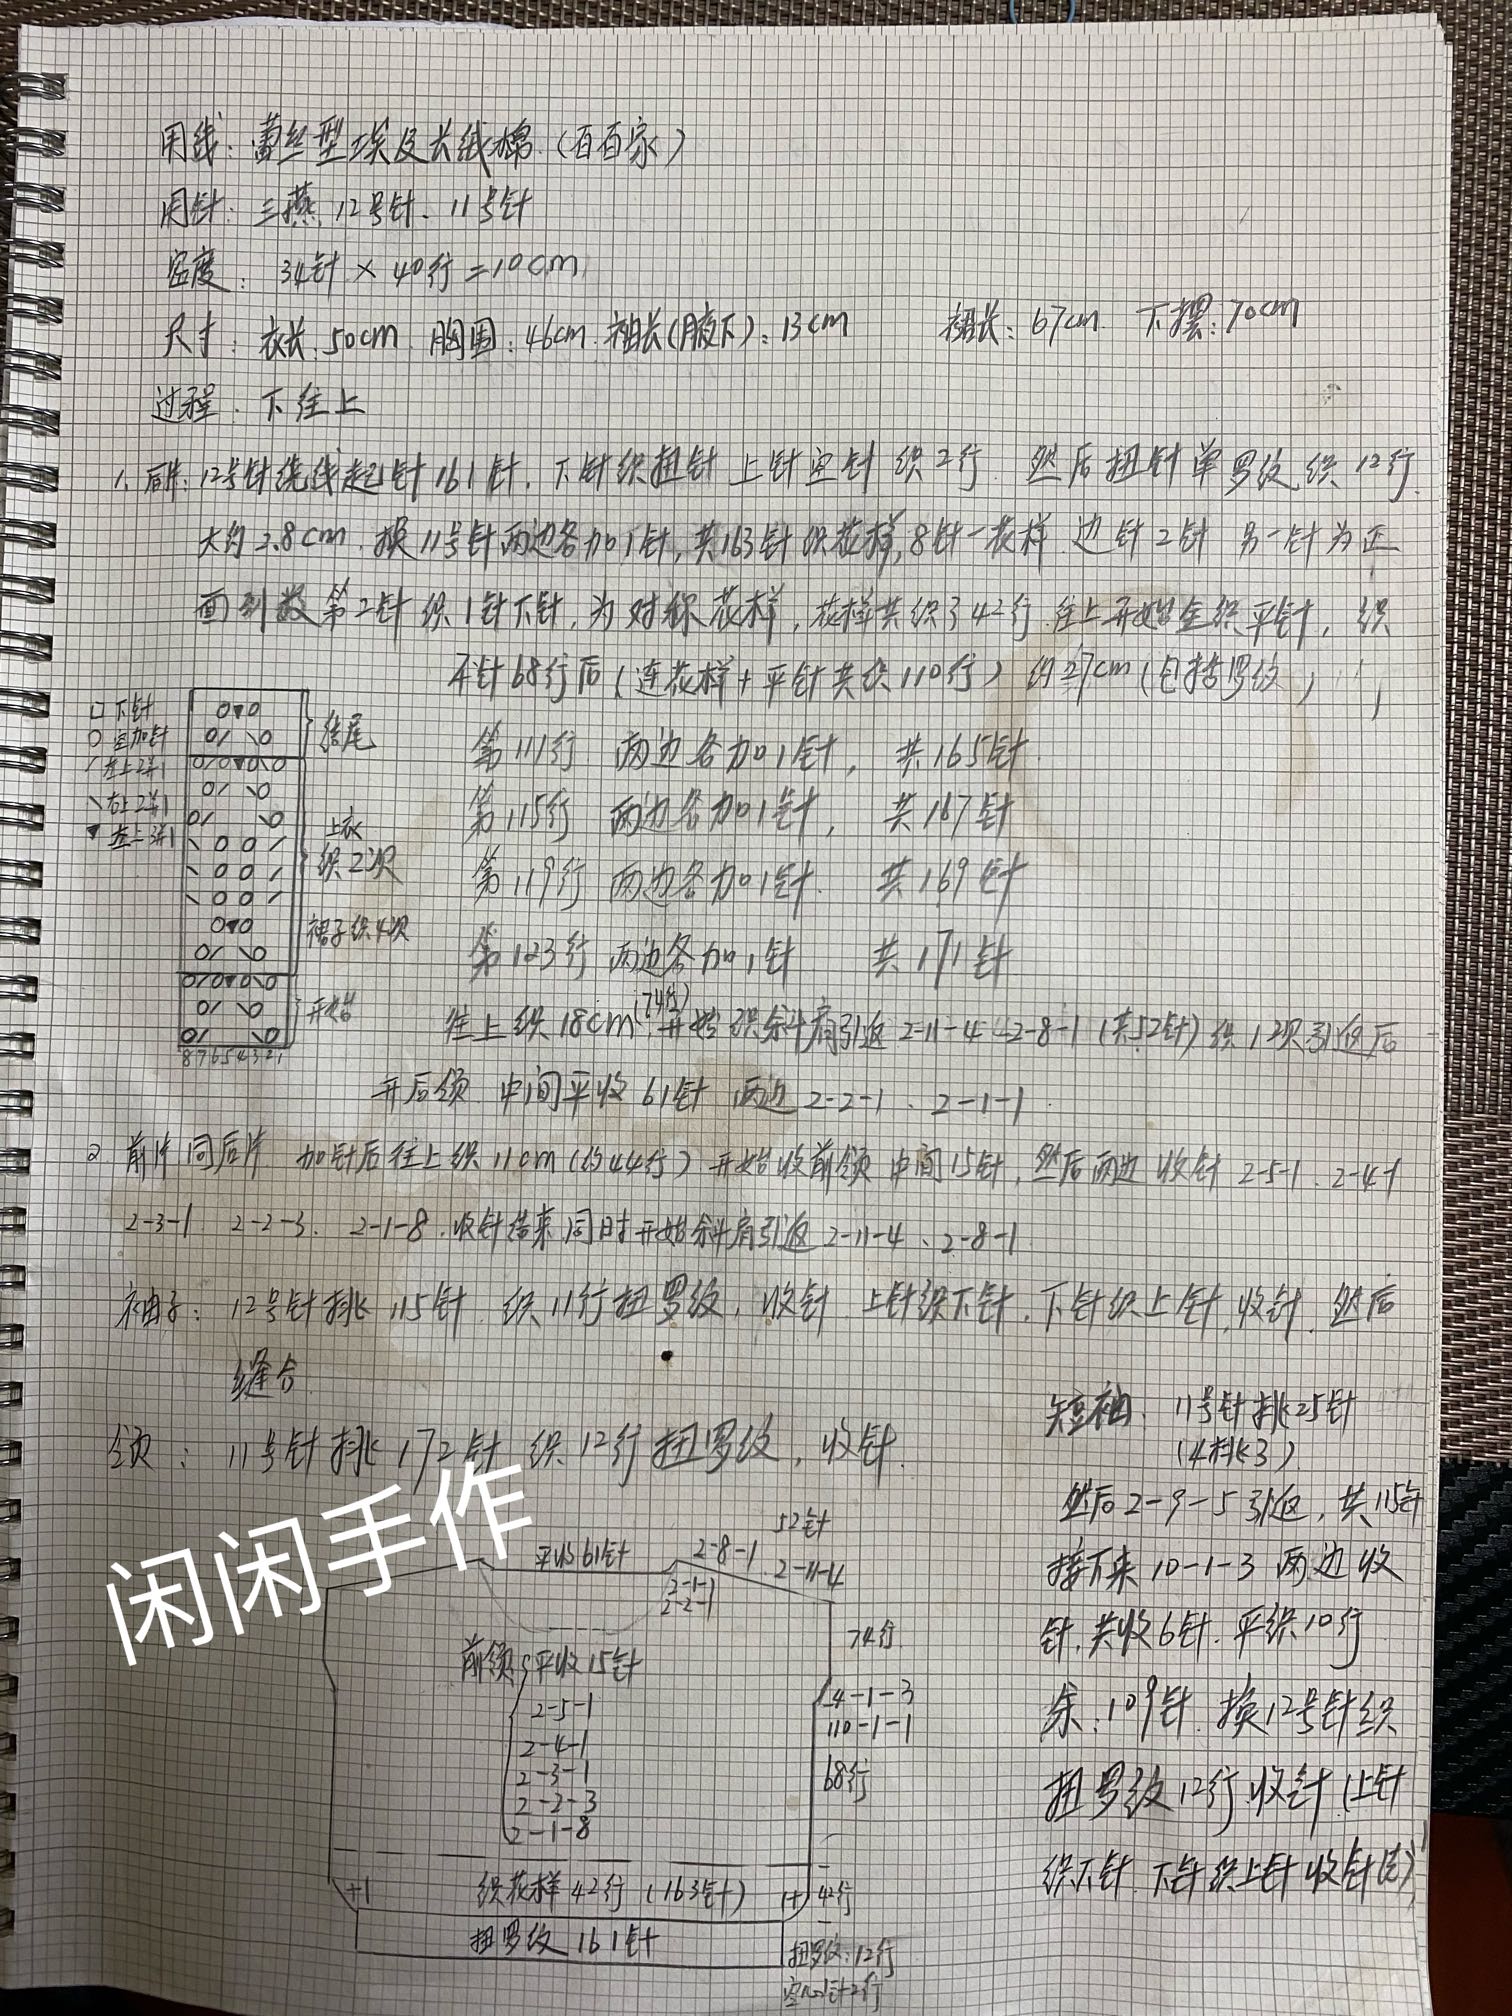 用线：蕾丝型埃及长绒棉（百百家）
用针：三燕12号针、11号针
密度：34针×40行=10cm
尺寸：衣长:50cm 胸围:46cm 袖长(腋下):13cm 裙长:67cm 下摆:70cm
过程. 下往上
1. 后片:12号针绕线起针161针，下针织扭针 上针空针 织2行. 然后扭针单罗纹织12行.
大约3.8cm. 换11号针两边各加1针,共163针织花样,8针一花样 边针2针 另一针为正
面到数第2针织1针下针,为对称花样,花样共织了42行.往上开始全织平针,织
平针68行后(连花样+平针共织110行)约27cm(包括罗纹)
第111行 两边各加1针, 共165针.
第115行 两边各加1针, 共167针
第119行 两边各加1针. 共169针
第123行 两边各加1针 共171针
往上织18cm(74行)开始织斜肩引返2-11-4 2-8-1(共52针)织1次引返后
开后领.中间平收61针 两边2-2-1、2-1-1.
□下针
○空加针
/左上2并1
\右上2并1
▼左上3并1
结尾
上衣
织2次
裙子织4次
开始
87654321
2 前片同后片 加针后往上织11cm(约44行)开始收前领 中间15针,然后两边收针2-5-1、2-4-1
2-3-1 2-2-3. 2-1-8.收针结束同时开始斜肩引返2-11-4、2-8-1
袖子:12号针挑115针.织11行扭罗纹,收针 上针织下针.下针织上针,收针.然后
缝合
领:11号针挑172针 织12行扭罗纹,收针.
短袖:11号针挑25针
(4挑3)
然后2-9-5引返,共115针
接下来10-1-3两边收
针,共收6针.平织10行
余:109针.换12号针织
扭罗纹12行收针(上针
织下针.下针织上针收针)
闲闲手作
平收61针
2-8-1
52针
2-11-4
2-1-1
2-2-1
74行
前领:平收15针
2-5-1
2-4-1
2-3-1
2-2-3
2-1-8
4-1-3
110-1-1
68行
+1
织花样42行(163针)
1+
42行
扭罗纹161针
扭罗纹:12行
空心针2行